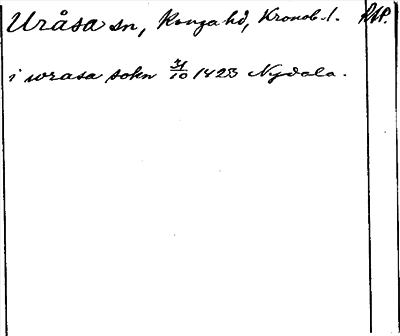 Uråsa sn, Konga hd, Kronob. l. RAP.
i wrasa sokn 31/10 1423 Nydala.